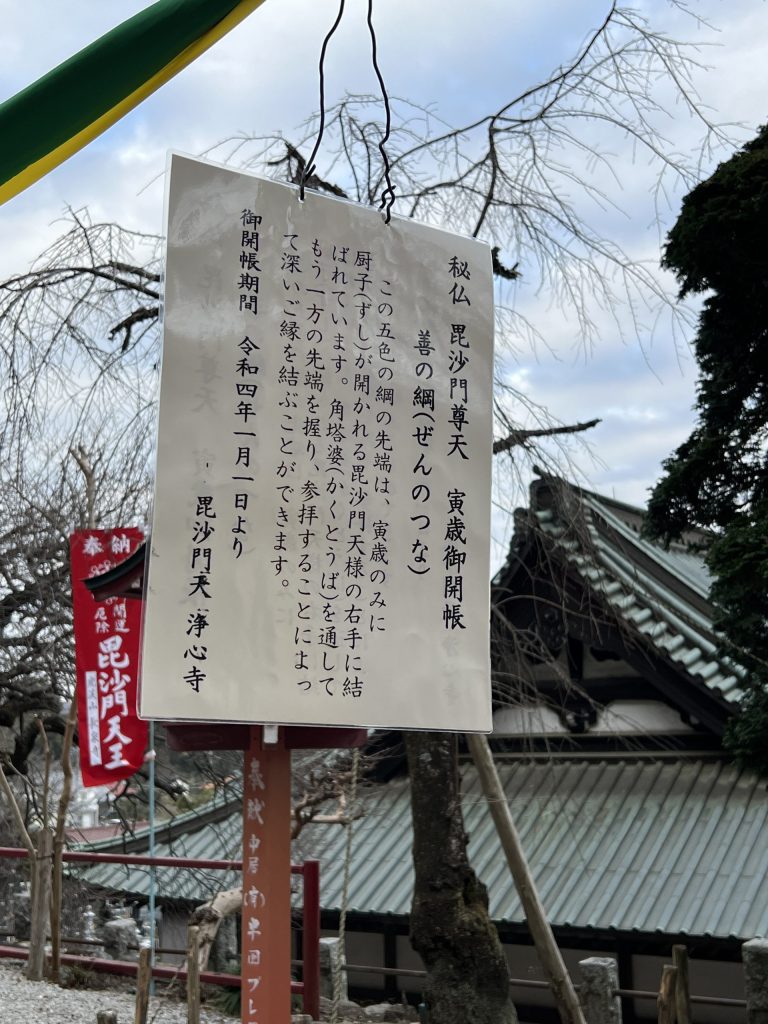 秘仏 毘沙門尊天 寅歳御開帳
善の綱(ぜんのつな)
この五色の綱の先端は、寅歳のみに
厨子(ずし)が開かれる毘沙門天様の右手に結
ばれています。角塔婆(かくとうば)を通して
もう一方の先端を握り、参拝することによっ
て深いご縁を結ぶことができます。
御開帳期間 令和四年一月一日より
毘沙門天 浄心寺
奉納
開運
厄除
毘沙門天王
奉献